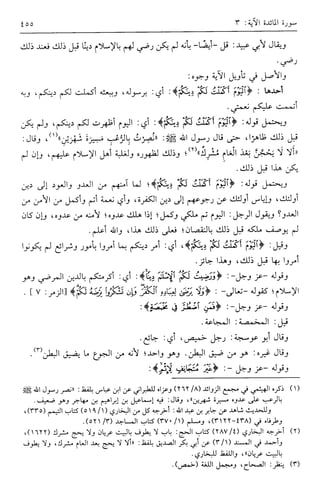 سورة المائدة الآية: ٣
٤٥٥
ويقال لأبي عبيد: قل -أيضًا- بأنه لم يكن رضي لهم بالإسلام دينًا قبل ذلك فعند ذلك
رضي.
والأصل في تأويل الآية وجوه:
أحدها: ﴿الْيَوْمَ أَكْمَلْتُ لَكُمْ دِينَكُمْ﴾: أي: برسوله، وببعثه أكملت لكم دينكم، وبه
أتممت عليكم نعمتي.
ويحتمل قوله: ﴿الْيَوْمَ أَكْمَلْتُ لَكُمْ دِينَكُمْ﴾: أي: اليوم أظهرت لكم دينكم، ولم يكن
قبل ذلك ظاهرًا، حتى قال رسول الله ﷺ: «نُصِرْتُ بِالرُّعْبِ مَسِيرَةَ شَهْرَيْنِ»(١)، وقال:
«أَلَا لَا يَحُجَّنَّ بَعْدَ الْعَامِ مُشْرِكٌ»(٢)؛ وذلك لظهوره ولغلبة أهل الإسلام عليهم، وإن لم
يكن هذا قبل ذلك.
ويحتمل قوله: ﴿الْيَوْمَ أَكْمَلْتُ لَكُمْ دِينَكُمْ﴾؛ لما آمنهم من العدو والعود إلى دين
أولئك، وإياس أولئك عن رجوعهم إلى دين الكفرة، وأي نعمة أتم وأكمل من الأمن من
العدو؟ ويقول الرجل: اليوم تم ملكي وكمل؛ إذا هلك عدوه؛ لأمنه من عدوه، وإن كان
لم يوصف ملكه قبل ذلك بالنقصان؛ فعلى ذلك هذا، والله أعلم.
وقيل: ﴿الْيَوْمَ أَكْمَلْتُ لَكُمْ دِينَكُمْ﴾، أي: أمر دينكم بما أمروا بأمور وشرائع لم يكونوا
أمروا بها قبل ذلك، وهذا جائز.
وقوله -عز وجل-: ﴿وَرَضِيتُ لَكُمُ الْإِسْلَامَ دِينًا﴾: أي: أكرمتكم بالدين المرضي وهو
الإسلام؛ كقوله -تعالى-: ﴿وَلَا يَرْضَى لِعِبَادِهِ الْكُفْرَ وَإِن تَشْكُرُوا يَرْضَهُ لَكُمْ﴾ [الزمر: ٧].
وقوله -عز وجل-: ﴿فَمَنِ اضْطُرَّ فِي مَخْمَصَةٍ﴾:
قيل: المخمصة: المجاعة.
وقال أبو عوسجة: رجل خميص، أي: جائع.
وقال غيره: هو من ضيق البطن، وهو واحد؛ لأنه من الجوع ما يضيق البطن(٣).
وقوله -عز وجل-: ﴿غَيْرَ مُتَجَانِفٍ لِإِثْمٍ﴾:
(١) ذكره الهيثمي في مجمع الزوائد (٨/ ٢٦٢) وعزاه للطبراني عن ابن عباس بلفظ: «نصر رسول الله ﷺ
بالرعب على عدوه مسيرة شهرين»، وقال: فيه إسماعيل بن إبراهيم بن مهاجر وهو ضعيف.
وللحديث شاهد عن جابر بن عبد الله: أخرجه كل من البخاري (١/ ٥١٩) كتاب التيمم (٣٣٥)،
وطرفاه في (٤٣٨-٣١٢٢)، ومسلم (١/ ٣٧٠) كتاب المساجد (٥٢١/٣).
(٢) أخرجه البخاري (٤/ ٢٨٧) كتاب الحج: باب لا يطوف بالبيت عريان ولا يحج مشرك (١٦٢٢)،
وأحمد في المسند (١/ ٣) عن أبي بكر الصديق بلفظ: «ألا لا يحج بعد العام مشرك، ولا يطوف
بالبيت عريان»، واللفظ للبخاري.
(٣) ينظر: الصحاح، ومجمل اللغة (خمص).